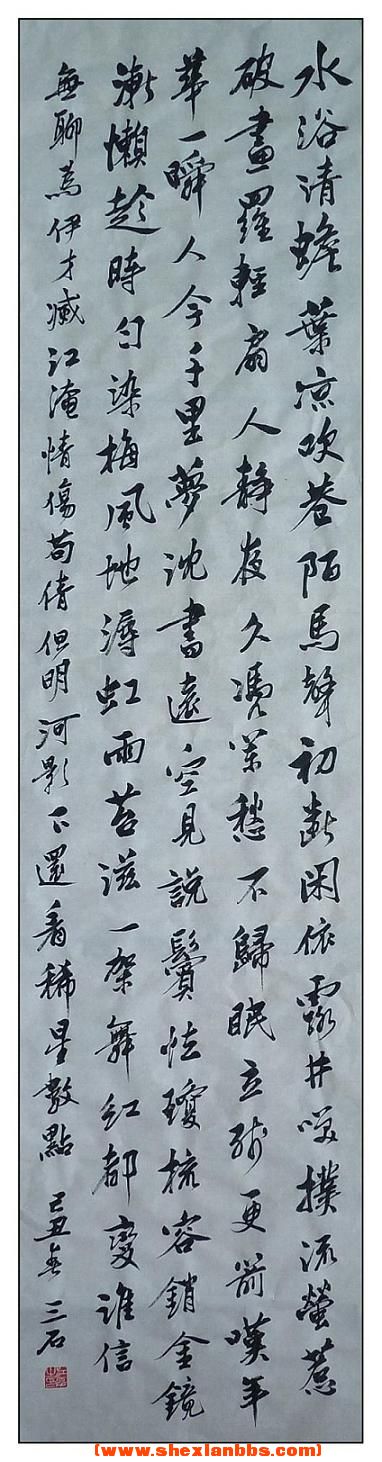 水浴清蟾葉凉吹巷陌馬聲初斷閑依露井笑撲流螢惹
破畫羅輕扇人靜夜久憑闌愁不歸眠立殘更箭嘆年
華一瞬人今千里夢沈書遠空見說鬢怯瓊梳容銷金鏡
漸懶趁時勻染梅風地溽虹雨苔滋一架舞紅都變誰信
無聊為伊才減江淹情傷荀倩但明河影下還看稀星數點 己丑 三石
(www.shexianbbs.com)